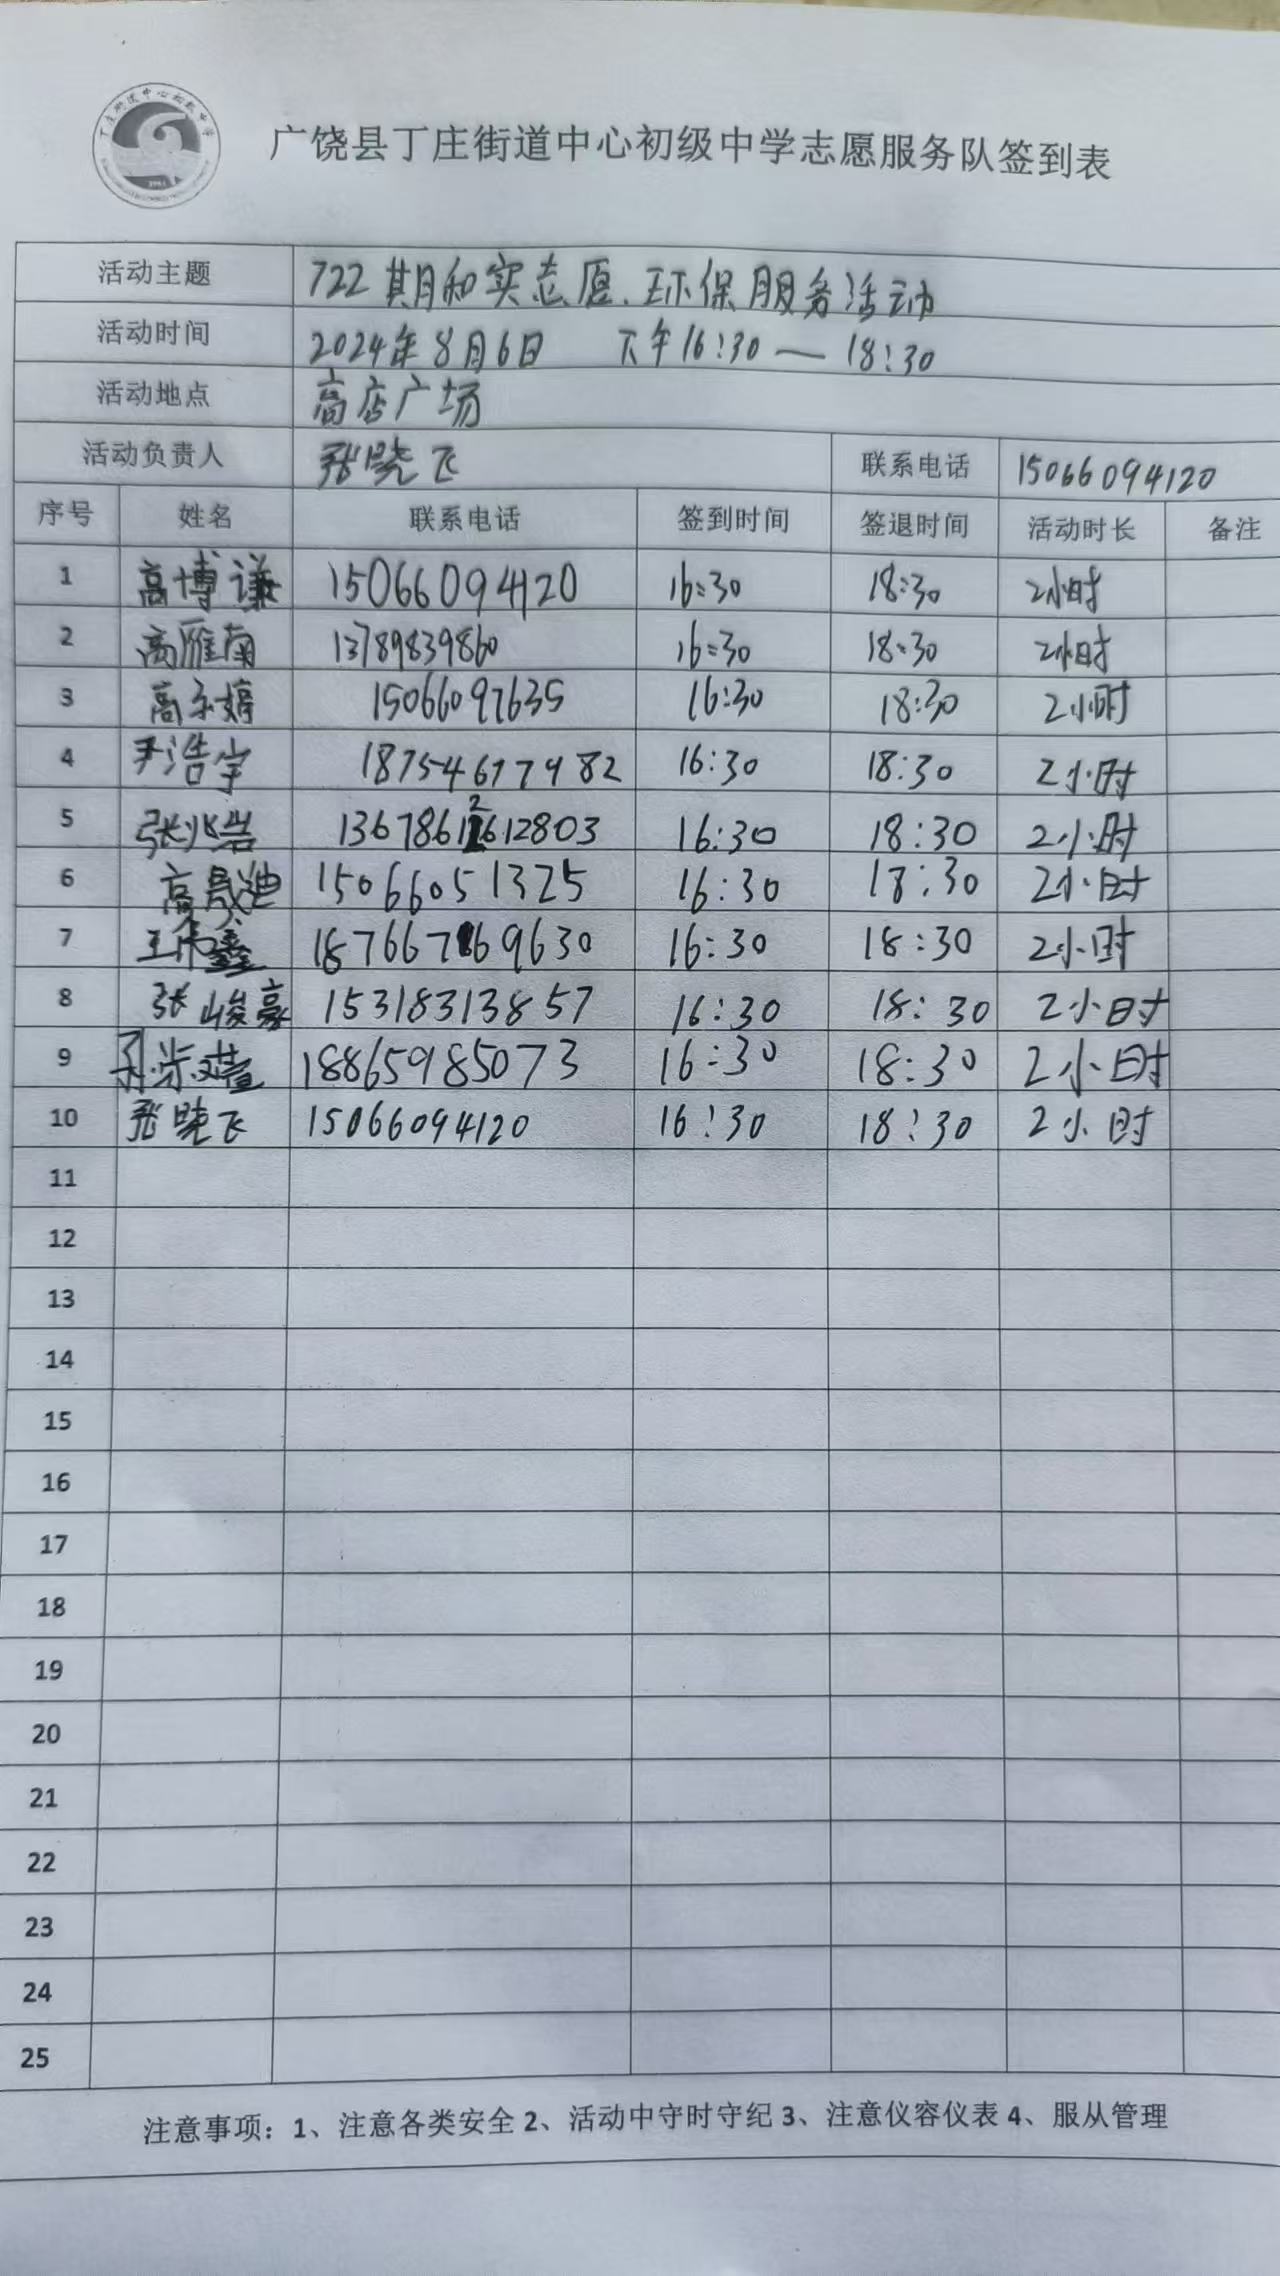 丁庄街道中心初级中学
广饶县丁庄街道中心初级中学志愿服务队签到表
活动主题 722期和实志愿、环保服务活动
活动时间 2024年8月6日 下午16:30—18:30
活动地点 高店广场
活动负责人 张晓飞 联系电话 15066094120
序号 姓名 联系电话 签到时间 签退时间 活动时长 备注
1 高博谦 15066094120 16:30 18:30 2小时
2 高雁南 13789839860 16:30 18:30 2小时
3 高子婷 15066097635 16:30 18:30 2小时
4 尹浩宇 18754677982 16:30 18:30 2小时
5 张兆岩 16:30 18:30 2小时
6 高晟迪 15066051325 16:30 18:30 2小时
7 王伟鑫 16:30 18:30 2小时
8 张峻豪 15318313857 16:30 18:30 2小时
9 18865985073 16:30 18:30 2小时
10 张晓飞 15066094120 16:30 18:30 2小时
11
12
13
14
15
16
17
18
19
20
21
22
23
24
25
注意事项：1、注意各类安全 2、活动中守时守纪 3、注意仪容仪表 4、服从管理